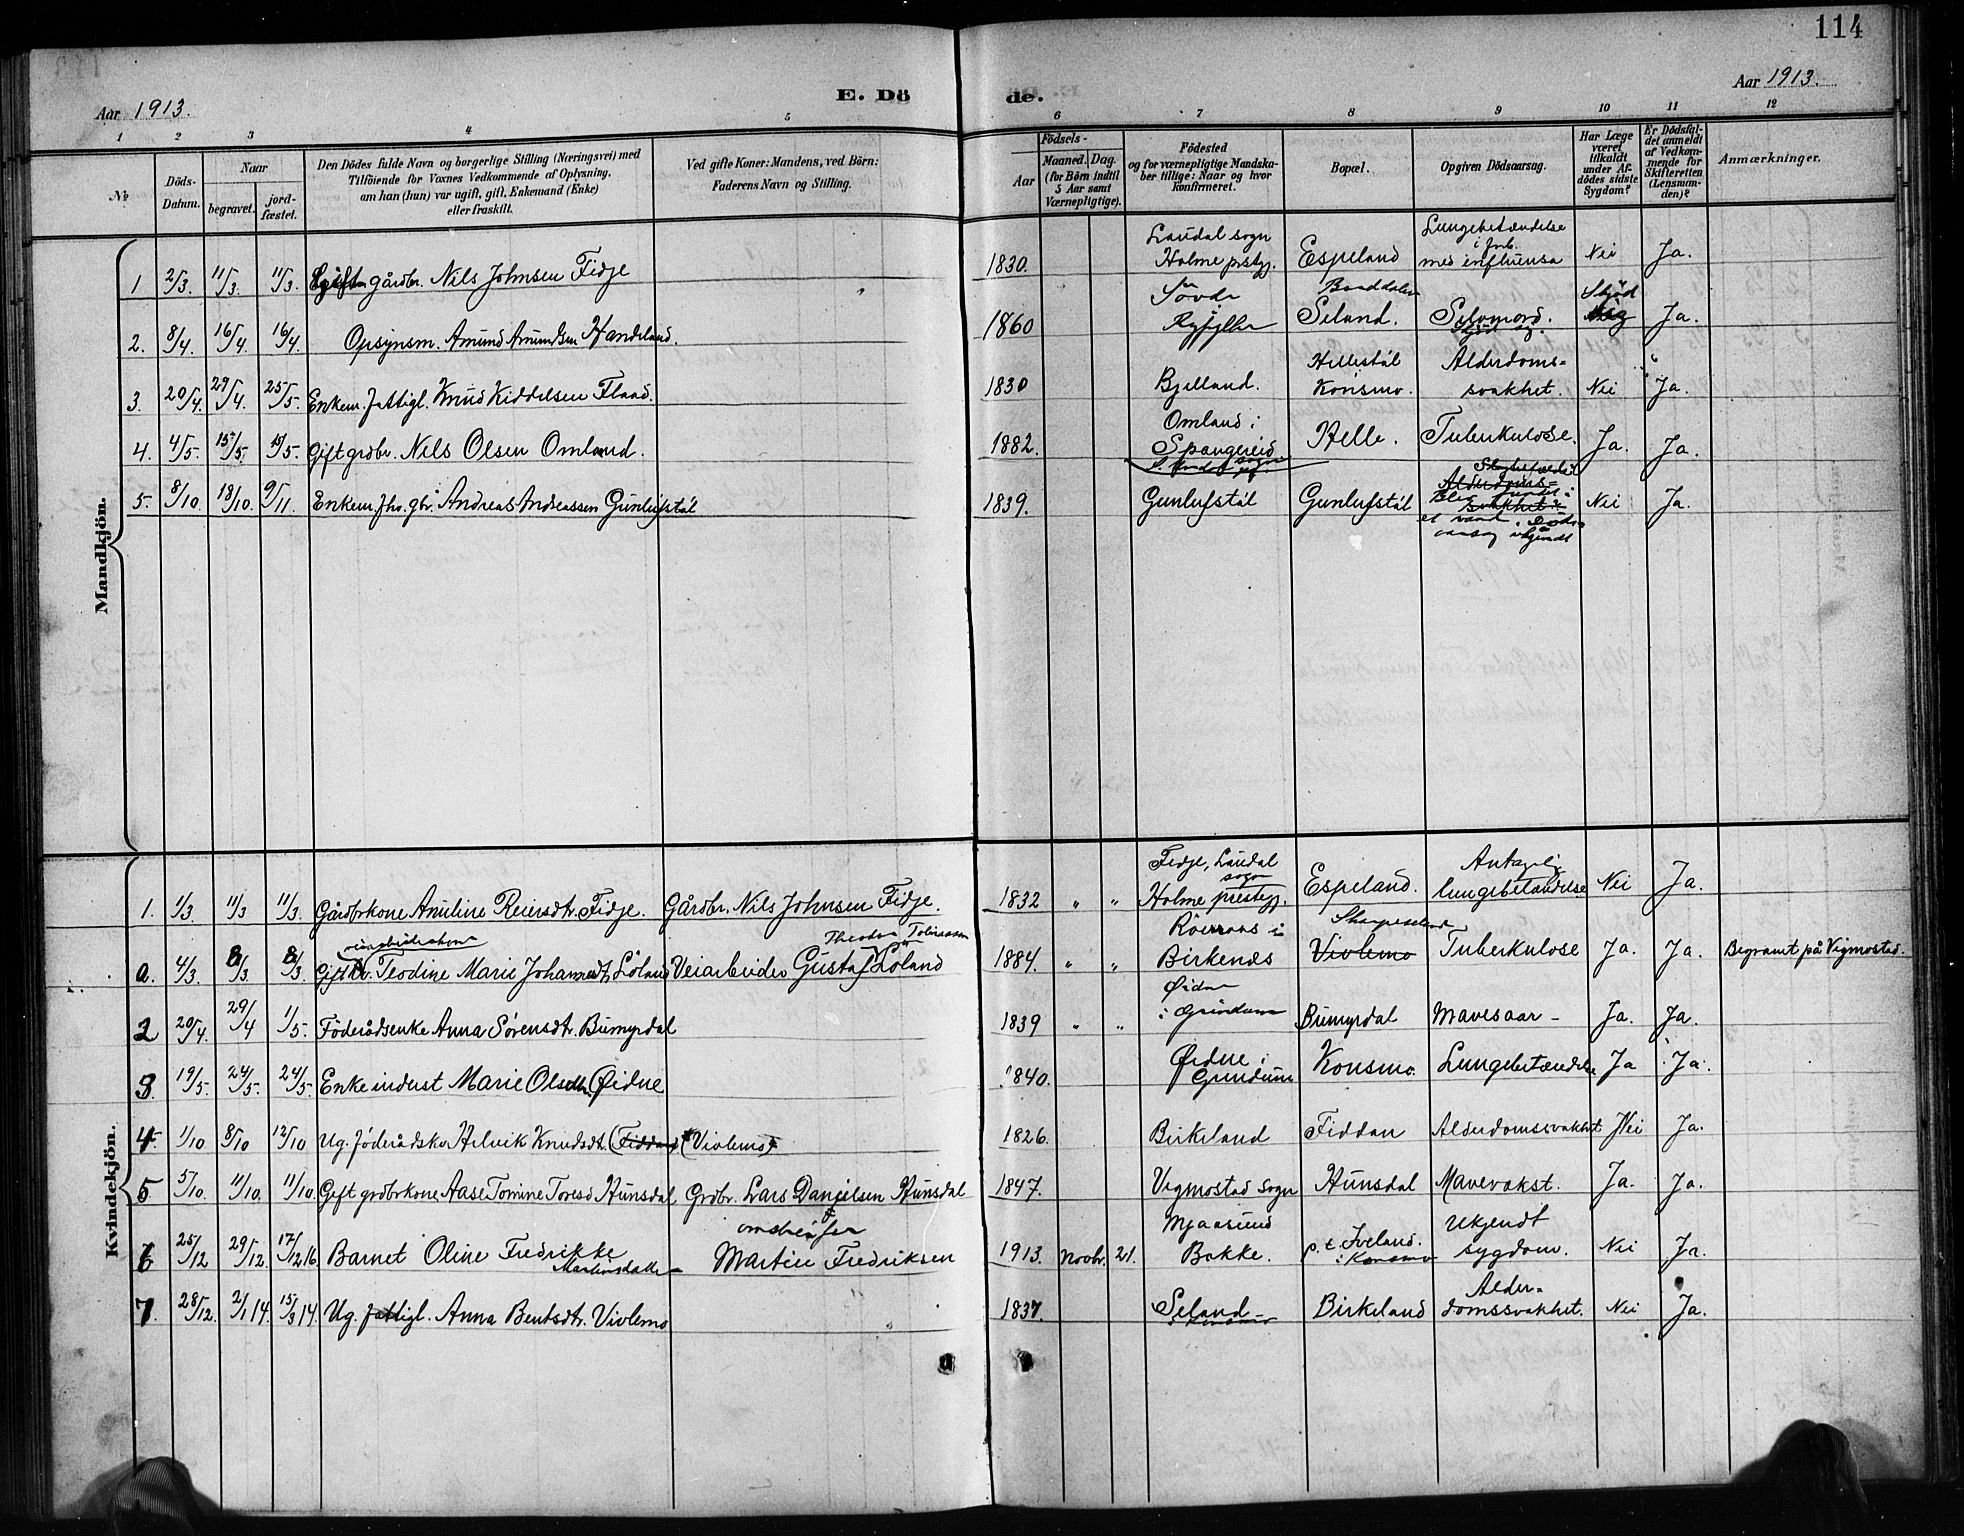 114
Aar 1913.
E. Dö
de.
Aar 1913.
1 2 3 4 5 6 7 8 9 10 11 12
No
Döds-Datum.
Naar
begravet.
jord-fæstet.
Den Dödes fulde Navn og borgerlige Stilling (Næringsvei) med
Tilföiende for Voxnes Vedkommende af Oplysning,
om han (hun) var ugift, gift, Enkemand (Enke)
eller fraskilt.
Ved gifte Koner: Mandens, ved Börn:
Faderens Navn og Stilling.
Födsels-
Aar
Maaned. Dag.
(for Börn indtil
5 Aar samt
Værnepligtige).
Födested
og for værnepligtige Mandska-
ber tillige: Naar og hvor
konfirmeret.
Bopæl.
Opgiven Dödsaarsag.
Har Læge
været
tilkaldt
under Af-
dödes sidste
Sygdom?
Er Dödsfal-
det anmeldt
af Vedkom-
mende for
Skifteretten
(Lensman-
den)?
Anmærkninger.
Mandkjön.
1 2/3. 11/3. 11/3. Gift gårdbr. Nils Johnsen Fidje 1830. Laudal sogn Holme prstgj. Espeland Lungebetændelse i forb. med influensa Nei Ja.
2. 8/4. 16/4. 16/4. Opsynsm. Amund Amundsen Handeland. 1860 Sovde Ryfylke Seland. Selvmord. Ja.
3. 20/4. 29/4. 25/5. Enkem. fattigl. Knud Kiddelsen Flaad. 1830 Bjelland. Hellestöl Konsmo. Alderdoms= svakhet. Nei Ja.
4. 4/5. 15/5. 15/5. Gift grdbr. Nils Olsen Omland. 1882. Omland i Spangereid Helle. Tuberkulose. Ja. Ja.
5. 8/10. 18/10. 9/11. Enkem. fhv. gbr. Andreas Andreassen Gunlufstöl 1839. Gunlufstöl Gunlufstöl Alderdoms= svakhet Blev fundet i et vand. Döds= aarsag ukjendt Nei Ja.
Kvindekjön.
1. 1/3. 11/3 11/3. Gårdbrkone Anuline Reiersdtr. Fidje. Gårdbr. Nils Johnsen Fidje. 1832 " " Fidje, Laudal sogn Holme prestegj. Espeland. Antagelig lungebetændelse Nei Ja.
a. 4/3. 8/3 8/3. Gift Teodine Marie Johannesdtr. Löland Veiarbeider Theodor Tobiassen Gustaf Löland 1884. " " Birkenes Skarpeseland Vivlemo Tuberkulose Ja. Ja. Begravet på Vigmostad.
2 20/4. 29/4 1/5. Föderådsenke Anna Sørensdtr. Bumyrdal 1839 " " Øidne i Grindum Bumyrdal Mavesaar - Ja. Ja.
3 19/5. 24/5. 24/5. Enke inderst Marie Olsdtr. Øidne 1840. Øidne i Grindum Konsmo Lungebetændelse Ja Ja.
4 1/10 8/10 12/10 Ug. föderådskv. Helvik Knudsdt. (Fiddan) (Vivlemo) 1826. Birkeland Fiddan Alderdomssvakhet Nei Ja.
5 5/10. 11/10. 11/10. Gift grdbrkone Aase Tomine Toresd. Hunsdal Grdbr. Lars Danielsen Hunsdal 1847. Vigmostad Sogn Hunsdal Mavevækst. Ja. Ja.
6 25/12 29/12. 17/12 16. Barnet Oline Fredrikke Martinsdatter - omstreifer Martin Fredriksen 1913. Novbr. 21. Mjaasund Bakke. p. t. Iveland. i Konsmo Ukjendt sygdom. Nei Ja.
7. 28/12. 2/1 14. 15/3 14. Ug. fattigl. Anna Bentsdtr. Vivlemo 1837. Seland - i Konsmo Birkeland Alder= domssvakhet. Nei Ja.